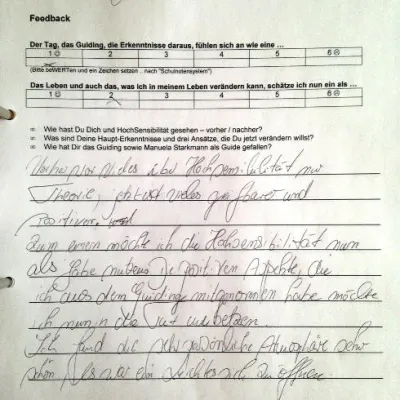 Feedback
Der Tag, das Guiding, die Erkenntnisse daraus, fühlen sich an wie eine ...
1☺ 2 3 4 5 6☹
(Bitte beWERTen und ein Zeichen setzen .. nach "Schulnotensystem")
Das Leben und auch das, was ich in meinem Leben verändern kann, schätze ich nun ein als ...
1☺ 2 3 4 5 6☹
Wie hast Du Dich und HochSensibilität gesehen – vorher / nachher?
Was sind Deine Haupt-Erkenntnisse und drei Ansätze, die Du jetzt verändern willst?
Wie hat Dir das Guiding sowie Manuela Starkmann als Guide gefallen?
Vorher war vieles über Hochsensibilität nur
Theorie, jetzt ist vieles greifbarer und
positiver.
Zum einen möchte ich die Hochsensibilität nun
als Gabe nutzen. Die positiven Aspekte, die
ich aus dem Guiding mitgenommen habe möchte
ich nun in die Tat umsetzen.
Ich fand die sehr persönliche Atmosphäre sehr
schön. Es war ein Leichtes sich zu öffnen